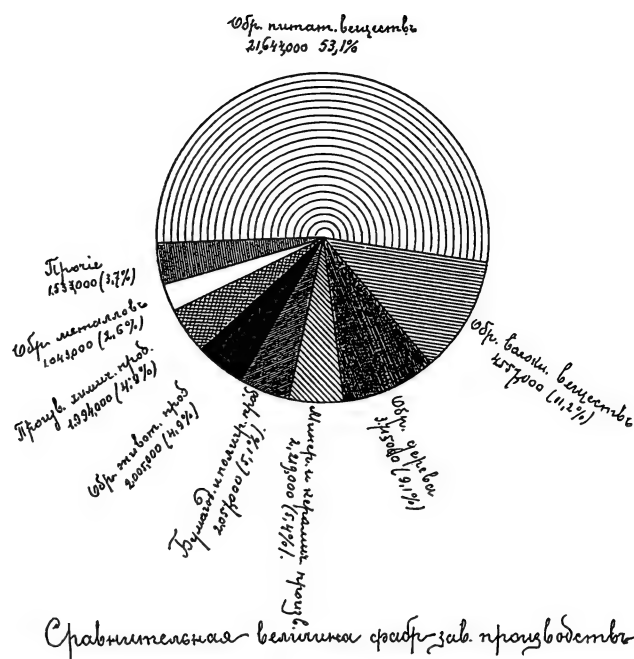 Обр. питат. веществъ
21,647,000 53,1%
Обр. волокн. веществъ
4557,000 (11,2%)
Обр. дерева
(9,1%)
Минер. и керамич. произв.
(5,4%).
Бумагод. и полигр. произ.
2.057,000 (5,1%).
Обр. живот. прод
2.005,000 (4,9%)
Произв. химич. прод.
1.994,000 (4,8%)
Обр. металловъ
1.043,000 (2,6%)
Прочіе
1.537,000 (3,7%)
Сравнительная величина фабр-зав. производствъ